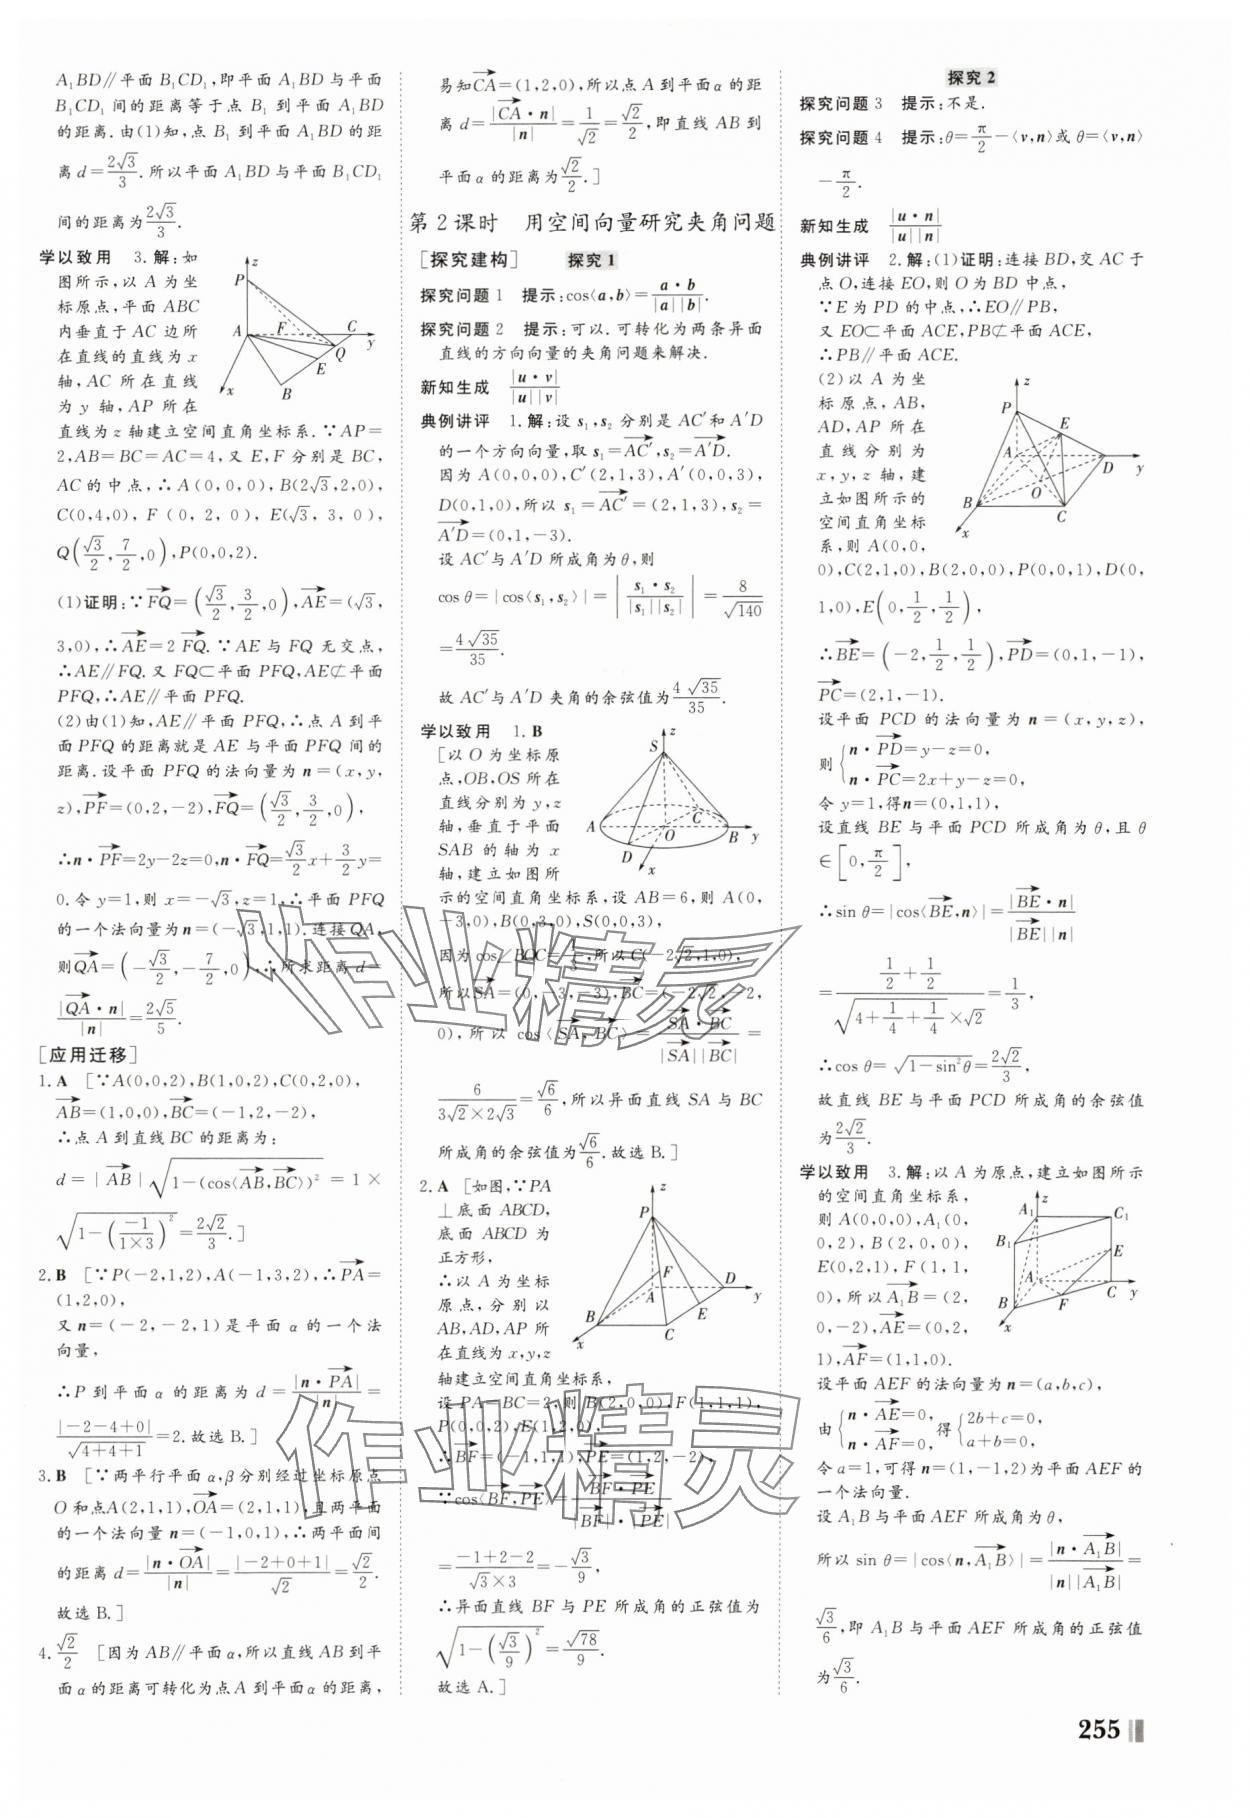 A₁BD∥平面 B₁CD₁,即平面 A₁BD 与平面
B₁CD₁ 间的距离等于点 B₁ 到平面 A₁BD
的距离.由(1)知,点 B₁ 到平面 A₁BD 的距
离 d=2√3/3.所以平面 A₁BD 与平面 B₁CD₁
间的距离为2√3/3.
学以致用 3.解:如
图所示,以 A 为坐
标原点,平面 ABC
内垂直于 AC 边所
在直线的直线为 x
轴,AC 所在直线
为 y 轴,AP 所在
直线为 z 轴建立空间直角坐标系.∵AP=
2,AB=BC=AC=4,又 E,F 分别是 BC,
AC 的中点,∴A(0,0,0),B(2√3,2,0),
C(0,4,0),F(0,2,0),E(√3,3,0),
Q(√3/2,7/2,0),P(0,0,2).
(1)证明:∵FQ→=(√3/2,3/2,0),AE→=(√3,
3,0),∴AE→=2FQ→.∵AE 与 FQ 无交点,
∴AE∥FQ.又 FQ⊂平面 PFQ,AE⊄平面
PFQ,∴AE∥平面 PFQ.
(2)由(1)知,AE∥平面 PFQ,∴点 A 到平
面 PFQ 的距离就是 AE 与平面 PFQ 间的
距离.设平面 PFQ 的法向量为 n=(x,y,
z),PF→=(0,2,-2),FQ→=(√3/2,3/2,0),
∴n·PF→=2y-2z=0,n·FQ→=√3/2x+3/2y=
0.令 y=1,则 x=-√3,z=1,∴平面 PFQ
的一个法向量为 n=(-√3,1,1).连接 QA,
则QA→=(-√3/2,-7/2,0),∴所求距离 d=
|QA→·n|/|n|=2√5/5.
[应用迁移]
1.A [∵A(0,0,2),B(1,0,2),C(0,2,0),
AB→=(1,0,0),BC→=(-1,2,-2),
∴点 A 到直线 BC 的距离为:
d=|AB→|√(1-(cos⟨AB→,BC→⟩)²)=1×
√(1-(-1/(1×3))²)=2√2/3.]
2.B [∵P(-2,1,2),A(-1,3,2),∴PA→=
(1,2,0),
又 n=(-2,-2,1)是平面 α 的一个法
向量,
∴P 到平面 α 的距离为 d=|n·PA→|/|n|=
|-2-4+0|/√(4+4+1)=2.故选 B.]
3.B [∵两平行平面 α,β分别经过坐标原点
O 和点A(2,1,1),OA→=(2,1,1),且两平面
的一个法向量 n=(-1,0,1),∴两平面间
的距离 d=|n·OA→|/|n|=|-2+0+1|/√2=√2/2.
故选 B.]
4.√2/2 [因为 AB∥平面 α,所以直线 AB 到平
面 α 的距离可转化为点 A 到平面 α 的距离,
易知CA→=(1,2,0),所以点 A 到平面 α 的距
离 d=|CA→·n|/|n|=1/√2=√2/2,即直线 AB 到
平面 α 的距离为√2/2.]
第 2 课时 用空间向量研究夹角问题
[探究建构] 探究 1
探究问题 1 提示:cos⟨a,b⟩=a·b/|a||b|.
探究问题 2 提示:可以.可转化为两条异面
直线的方向向量的夹角问题来解决.
新知生成 |u·v|/|u||v|
典例讲评 1.解:设 s₁,s₂ 分别是 AC′和 A′D
的一个方向向量,取 s₁=AC′→,s₂=A′D→.
因为 A(0,0,0),C′(2,1,3),A′(0,0,3),
D(0,1,0),所以 s₁=AC′→=(2,1,3),s₂=
A′D→=(0,1,-3).
设 AC′与 A′D 所成角为 θ,则
cos θ=|cos⟨s₁,s₂⟩|=|s₁·s₂/|s₁||s₂||=8/√140
=4√35/35.
故 AC′与 A′D 夹角的余弦值为4√35/35.
学以致用 1.B
[以 O 为坐标原
点,OB,OS 所在
直线分别为 y,z
轴,垂直于平面
SAB 的轴为 x
轴,建立如图所
示的空间直角坐标系,设 AB=6,则 A(0,
-3,0),B(0,3,0),S(0,0,3),
因为 cos∠BOC=1/3,所以C(-2√2,1,0),
所以SA→=(0,-3,-3),BC→=(-2√2,-2,
0),所以 cos⟨SA→,BC→⟩=SA→·BC→/|SA→||BC→|=
6/(3√2×2√3)=√6/6,所以异面直线 SA 与 BC
所成角的余弦值为√6/6.故选 B.]
2.A [如图,∵PA
⊥底面 ABCD,
底面 ABCD 为
正方形,
∴以 A 为坐标
原点,分别以
AB,AD,AP 所
在直线为 x,y,z
轴建立空间直角坐标系,
设 PA=BC=2,则 B(2,0,0),F(1,1,1),
P(0,0,2),E(1,2,0),
∴BF→=(-1,1,1),PE→=(1,2,-2),
∴cos⟨BF→,PE→⟩=BF→·PE→/|BF→|·|PE→|
=(-1+2-2)/(√3×3)=-√3/9,
∴异面直线 BF 与 PE 所成角的正弦值为
√(1-(√3/9)²)=√78/9.
故选 A.]
探究 2
探究问题 3 提示:不是.
探究问题 4 提示:θ=π/2-⟨v,n⟩或 θ=⟨v,n⟩
-π/2.
新知生成 |u·n|/|u||n|
典例讲评 2.解:(1)证明:连接 BD,交 AC 于
点 O,连接 EO,则 O 为 BD 中点,
∵E 为 PD 的中点,∴EO∥PB,
又 EO⊂平面 ACE,PB⊄平面 ACE,
∴PB∥平面 ACE.
(2)以 A 为坐
标原点,AB,
AD,AP 所在
直线分别为
x,y,z 轴,建
立如图所示的
空间直角坐标
系,则 A(0,0,
0),C(2,1,0),B(2,0,0),P(0,0,1),D(0,
1,0),E(0,1/2,1/2),
∴BE→=(-2,1/2,1/2),PD→=(0,1,-1),
PC→=(2,1,-1).
设平面 PCD 的法向量为 n=(x,y,z),
则{n·PD→=y-z=0,
n·PC→=2x+y-z=0,
令 y=1,得n=(0,1,1),
设直线 BE 与平面 PCD 所成角为 θ,且 θ
∈[0,π/2],
∴sin θ=|cos⟨BE→,n⟩|=|BE→·n|/|BE→||n|
=(1/2+1/2)/(√(4+1/4+1/4)×√2)=1/3,
∴cos θ=√(1-sin²θ)=2√2/3,
故直线 BE 与平面 PCD 所成角的余弦值
为2√2/3.
学以致用 3.解:以 A 为原点,建立如图所示
的空间直角坐标系,
则 A(0,0,0),A₁(0,
0,2),B(2,0,0),
E(0,2,1),F(1,1,
0),所以A₁B→=(2,
0,-2),AE→=(0,2,
1),AF→=(1,1,0).
设平面 AEF 的法向量为 n=(a,b,c),
由{n·AE→=0,
n·AF→=0,得{2b+c=0,
a+b=0,
令 a=1,可得 n=(1,-1,2)为平面 AEF 的
一个法向量.
设 A₁B 与平面 AEF 所成角为 θ,
所以 sin θ=|cos⟨n,A₁B→⟩|=|n·A₁B→|/|n||A₁B→|=
√3/6,即 A₁B 与平面 AEF 所成角的正弦值
为√3/6.
255
作业精灵
作业精灵